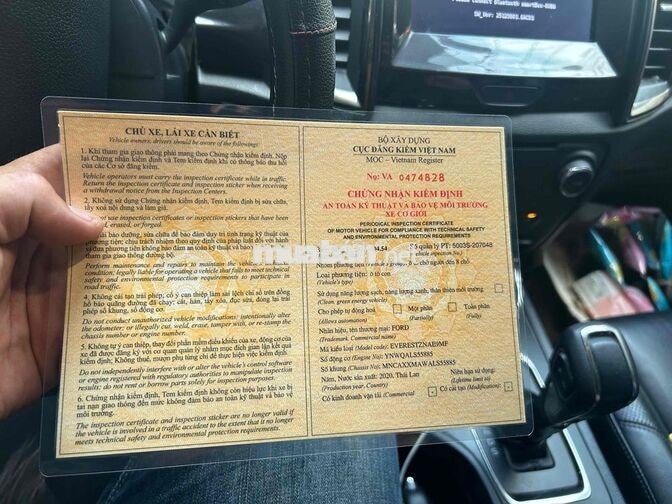 CHỦ XE, LÁI XE CẦN BIẾT
Vehicle owners, drivers should be aware of the followings:
1. Khi tham gia giao thông phải mang theo Chứng nhận kiểm định. Nộp
lại Chứng nhận kiểm định và Tem kiểm định khi có thông báo thu hồi
của các Cơ sở đăng kiểm.
Vehicle operators must carry the inspection certificate while in traffic.
Return the inspection certificate and inspection sticker when receiving
a withdrawal notice from the Inspection Centers.
2. Không sử dụng Chứng nhận kiểm định, Tem kiểm định bị sửa chữa,
tẩy xoá nội dung và làm giả.
not use inspection certificates or inspection stickers that have been
erased, or forged.
bảo dưỡng, sửa chữa để bảo đảm duy trì tình trạng kỹ thuật của
phương tiện; chịu trách nhiệm theo quy định của pháp luật đối với việc
đưa phương tiện không đảm bảo an toàn kỹ thuật và bảo vệ
tham gia giao thông đường bộ.
Perform maintenance and repairs to maintain the vehicle's
condition; legally liable for operating a vehicle that fails to meet technical
safety and environmental protection requirements to participate in
road traffic.
4. Không cải tạo trái phép; cố ý can thiệp làm sai lệch chỉ số trên đồng
hồ báo quãng đường đã chạy; cắt, hàn, tẩy xóa, đục sửa, đóng lại trái
phép số khung, số động cơ.
Do not conduct unauthorized vehicle modifications: intentionally alter
the odometer; or illegally cut, weld, erase, tamper with, or re-stamp the
chassis number or engine number.
5. Không tự ý can thiệp, thay đổi phần mềm điều khiển của xe, động cơ của
xe đã được đăng ký với cơ quan quản lý nhằm mục đích gian lận kết quả
kiểm định; Không thuê, mượn phụ tùng chỉ để thực hiện việc kiểm định.
Do not independently interfere with or alter the vehicle's control software
or engine registered with regulatory authorities to manipulate inspection
results; do not rent or borrow parts solely for inspection purposes.
6. Chứng nhận kiểm định, Tem kiểm định không còn hiệu lực khi xe bị
tai nạn giao thông đến mức không đảm bảo an toàn kỹ thuật và bảo vệ
môi trường.
The inspection certificate and inspection sticker are no longer valid if
the vehicle is involved in a traffic accident to the extent that it no longer
meets technical safety and environmental protection requirements.
BỘ XÂY DỰNG
CỤC ĐĂNG KIỂM VIỆT NAM
MOC – Vietnam Register
No: VA 0474828
CHỨNG NHẬN KIỂM ĐỊNH
AN TOÀN KỸ THUẬT VÀ BẢO VỆ MÔI TRƯỜNG
XE CƠ GIỚI
PERIODICAL INSPECTION CERTIFICATE
OF MOTOR VEHICLE FOR COMPLIANCE WITH TECHNICAL SAFETY
AND ENVIRONMENTAL PROTECTION REQUIREMENTS
14.54 Số quản lý PT: 5003S-207048
(Vehicle inspection No.)
Nhóm phương tiện chở người đến 8 chỗ.
Loại phương tiện: ô tô con
(Vehicle's type)
Sử dụng năng lượng sạch, năng lượng xanh, thân thiện môi trường
(Clean, green energy vehicle)
Cho phép tự động hoá Một phần Toàn phần
(Allows automation) (Partially) (Fully)
Nhãn hiệu, tên thương mại: FORD
(Trademark, Commercial name)
Mã kiểu loại (Model code): EVERESTZNAE9MF
Số động cơ (Engine No): YNWQALS55885
Số khung (Chassis No): MNCAXXMAWALS55885
Năm, Nước sản xuất: 2020, Thái Lan
(Production year, Country)
Niên hạn sử dụng:
(Lifetime limit to)
Có kinh doanh vận tải (Commercial
Có cải tạo (Modified):